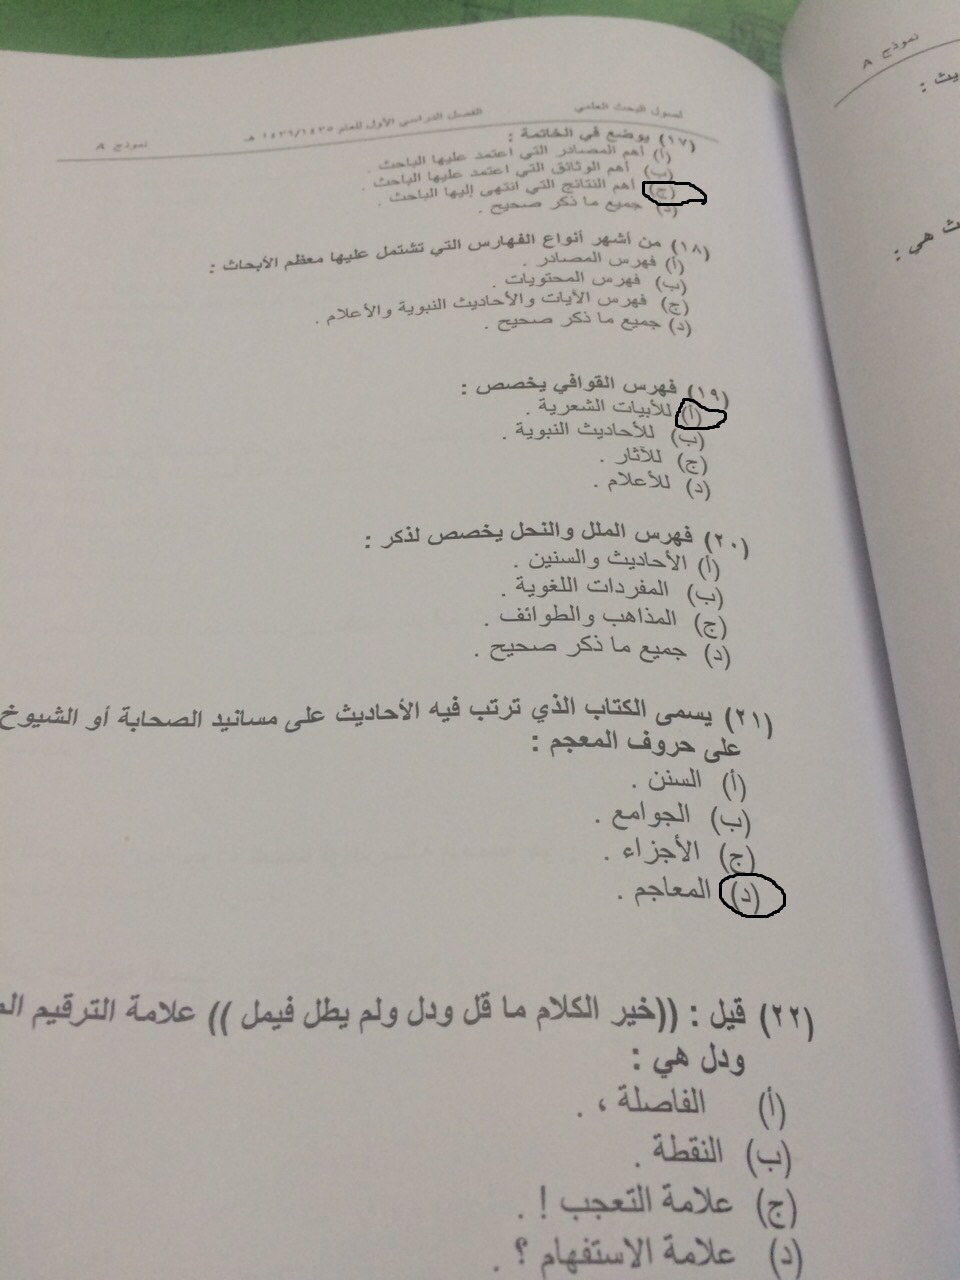 أصول البحث العلمي الفصل الدراسي الأول للعام ١٤٣٥/١٤٣٦ هـ نموذج A
(١٧) يوضع في الخاتمة :
(أ) أهم المصادر التي اعتمد عليها الباحث .
(ب) أهم الوثائق التي اعتمد عليها الباحث .
(ج) أهم النتائج التي انتهى إليها الباحث .
(د) جميع ما ذكر صحيح .
(١٨) من أشهر أنواع الفهارس التي تشتمل عليها معظم الأبحاث :
(أ) فهرس المصادر .
(ب) فهرس المحتويات .
(ج) فهرس الآيات والأحاديث النبوية والأعلام .
(د) جميع ما ذكر صحيح .
(١٩) فهرس القوافي يخصص :
(أ) للأبيات الشعرية .
(ب) للأحاديث النبوية .
(ج) للآثار .
(د) للأعلام .
(٢٠) فهرس الملل والنحل يخصص لذكر :
(أ) الأحاديث والسنين .
(ب) المفردات اللغوية .
(ج) المذاهب والطوائف .
(د) جميع ما ذكر صحيح .
(٢١) يسمى الكتاب الذي ترتب فيه الأحاديث على مسانيد الصحابة أو الشيوخ
على حروف المعجم :
(أ) السنن .
(ب) الجوامع .
(ج) الأجزاء .
(د) المعاجم .
(٢٢) قيل : ((خير الكلام ما قل ودل ولم يطل فيمل )) علامة الترقيم
ودل هي :
(أ) الفاصلة ، .
(ب) النقطة .
(ج) علامة التعجب ! .
(د) علامة الاستفهام ؟ .
نموذج A
هي :